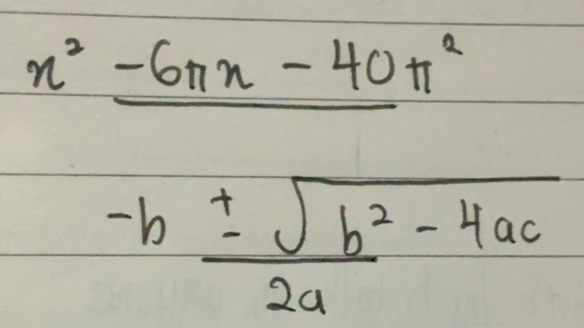 x² -6πx - 40π²
-b ± √b² - 4ac
2a